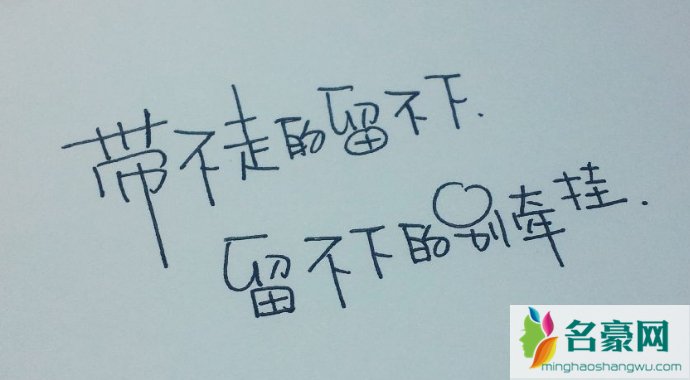 带不走的留不下.
留不下的别牵挂.
名豪网
minghaoshangwu.com